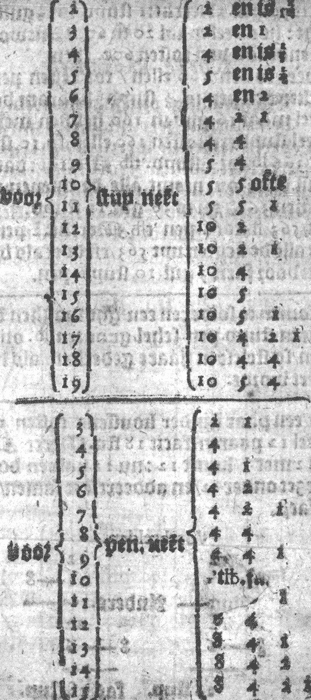 2 2 en is
3 2 en 1
4 4 en is
5 5 en is
6 4 en 2
7 4 2 1
8 4 4
9 5 4
10 5 5 ofte
voor 11 stup. nekt 5 5 1
12 10 2
13 10 2 1
14 10 4
15 10 5
16 10 5 1
17 10 4 2 1
18 10 4 4
19 10 5 4
3 2 1
4 4
5 4 1
6 4 2
7 4 2 1
8 4 4
voor 9 pen. nekt 4 4 1
10
11 1
12 8 4
13 8 4 1
14 8 4 2
15 8 4 2 1